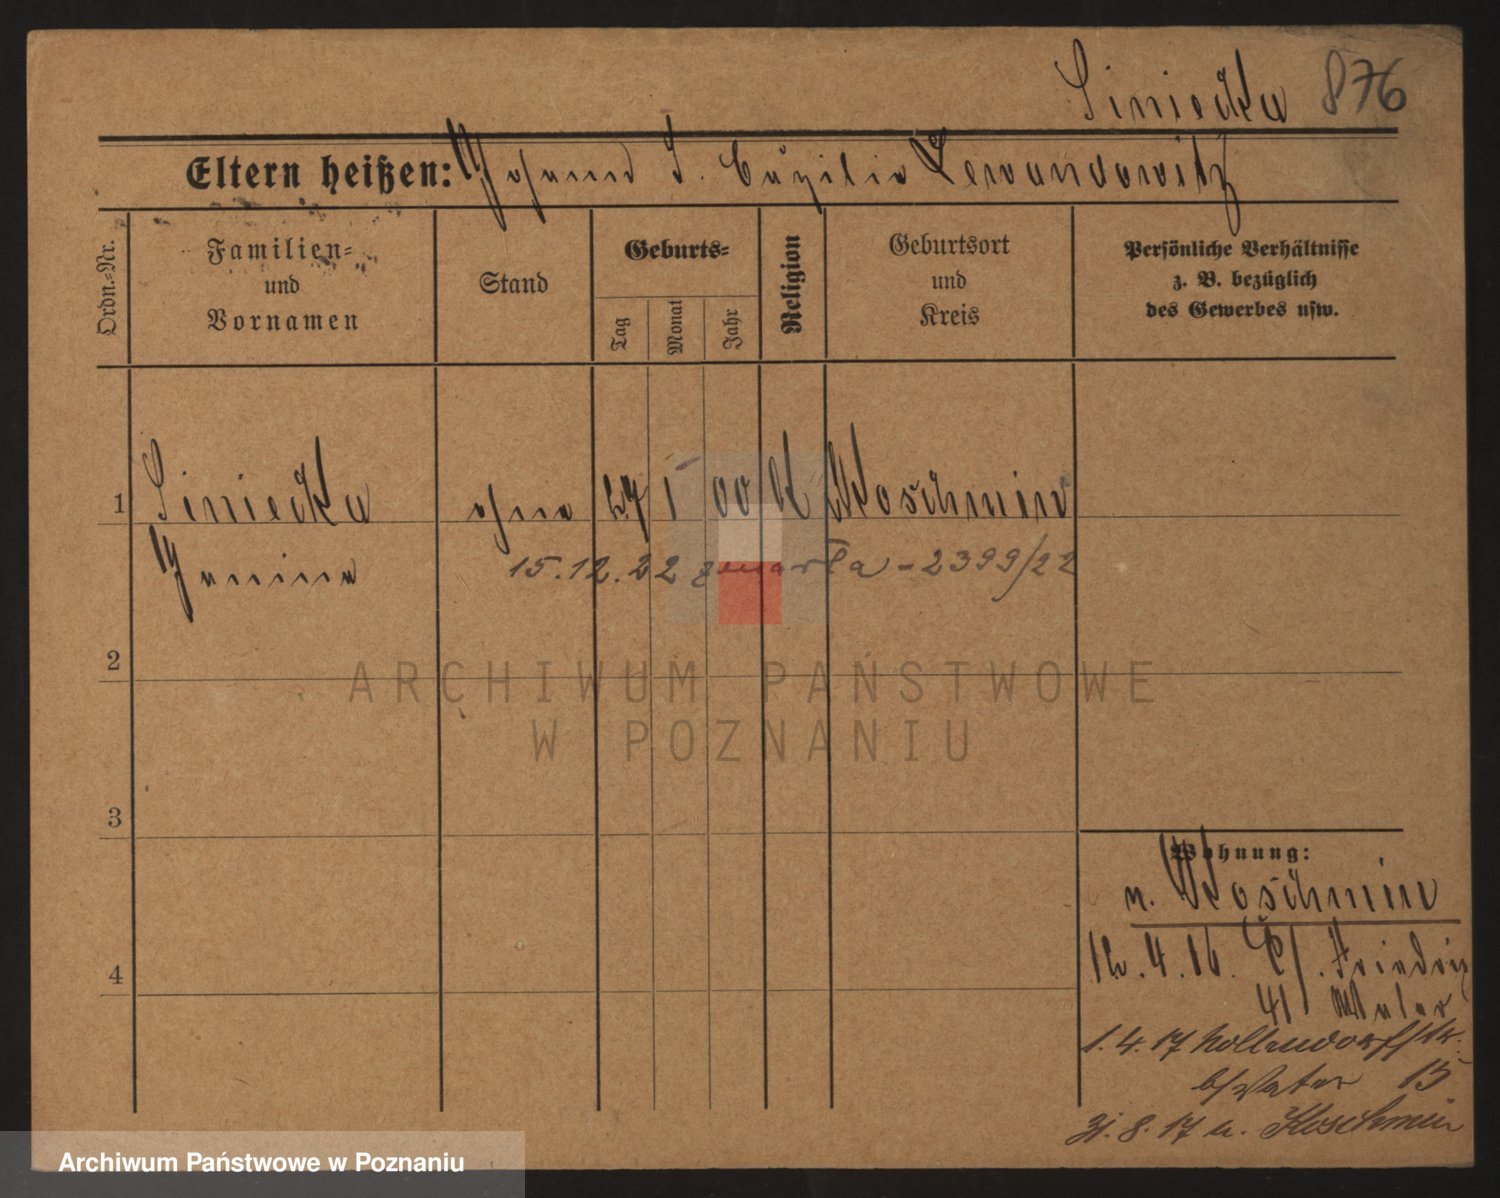 Siniecka 876
Eltern heißen: Johann S. Cäzilia Lewandowitz
Ordn.-Nr.
Familien-
und
Vornamen
Stand
Geburts-
Tag
Monat
Jahr
Religion
Geburtsort
und
Kreis
Persönliche Verhältnisse
z. B. bezüglich
des Gewerbes usw.
1 Siniecka ohne 27 1 00 K Koschmin
Janina
15.12.22 zmarła - 2399/22
2
ARCHIWUM PAŃSTWOWE
W POZNANIU
3
Wohnung:
n. Koschmin
4
12.4.16. Friedriz
41 Vater
1.4.17 Nollendorffstr.
b/Vater 15
31.8.17 n. Koschmin
Archiwum Państwowe w Poznaniu